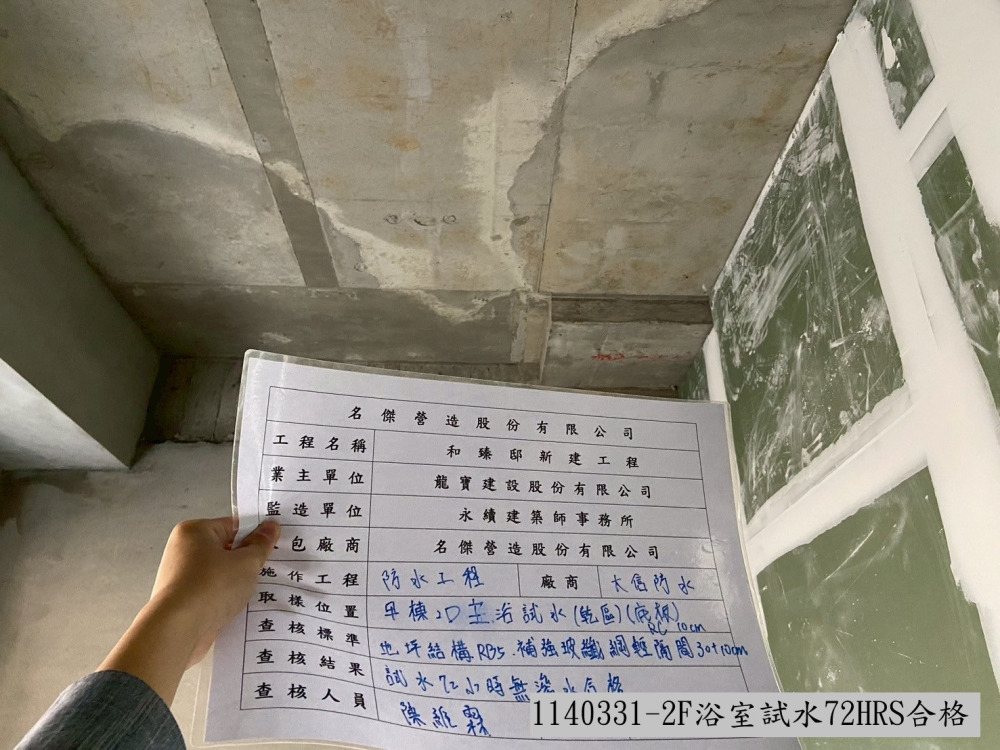 名傑營造股份有限公司
工程名稱 和臻邸新建工程
業主單位 龍寶建設股份有限公司
監造單位 永續建築師事務所
包廠商 名傑營造股份有限公司
施作工程 防水工程 廠商 大信防水
取樣位置 棟2D主浴試水(乾區)(底板)
查核標準 地坪結構RBS.補強玻纖網輕隔間30+10cm
RC 10cm
查核結果 試水72小時無滲水合格
查核人員 陳維霖
1140331-2F浴室試水72HRS合格